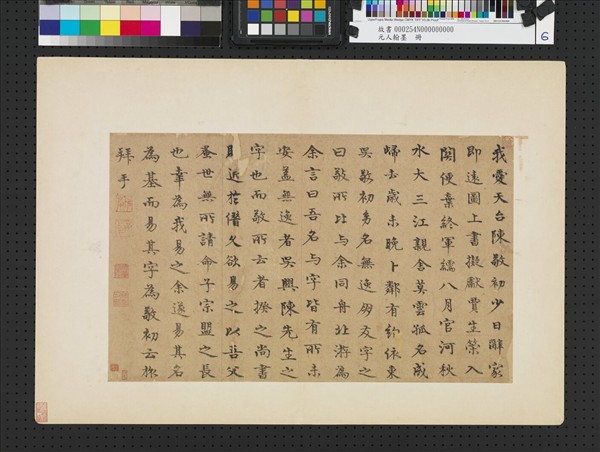 故書 000254N000000000
元人翰墨 冊
6
我愛天台陳敬初少日辭家
即遠圖上書擬獻賈生策入
關便棄終軍繻八月官河秋
水大三江親舍莫雲孤名成
歸去歲未晚卜鄰有約依東
吳敬初舅名無逸朋友字之
曰敬所比与余同舟北游為
余言曰吾名与字皆有所未
安蓋無逸者吳興陳先生之
字也而敬所云者揆之尚書
則近於僭久欲易之以吾父
蚤世無所請命子宗盟之長
也幸為我易之余遂易其名
為基而易其字為敬初云
拜手